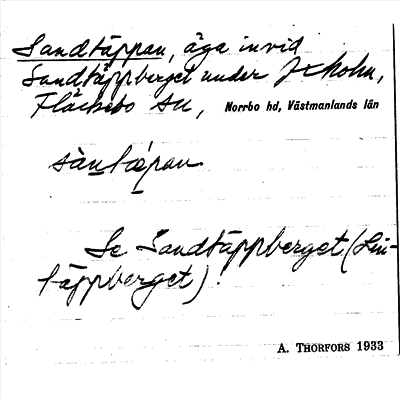 Sandtäppan, äga invid
Sandtäppberget under Ixholm,
Fläckebo sn, Norrbo hd, Västmanlands län
sàntæ̀pan
Se Sandtäppberget (Sin-
täppberget).
A. THORFORS 1933